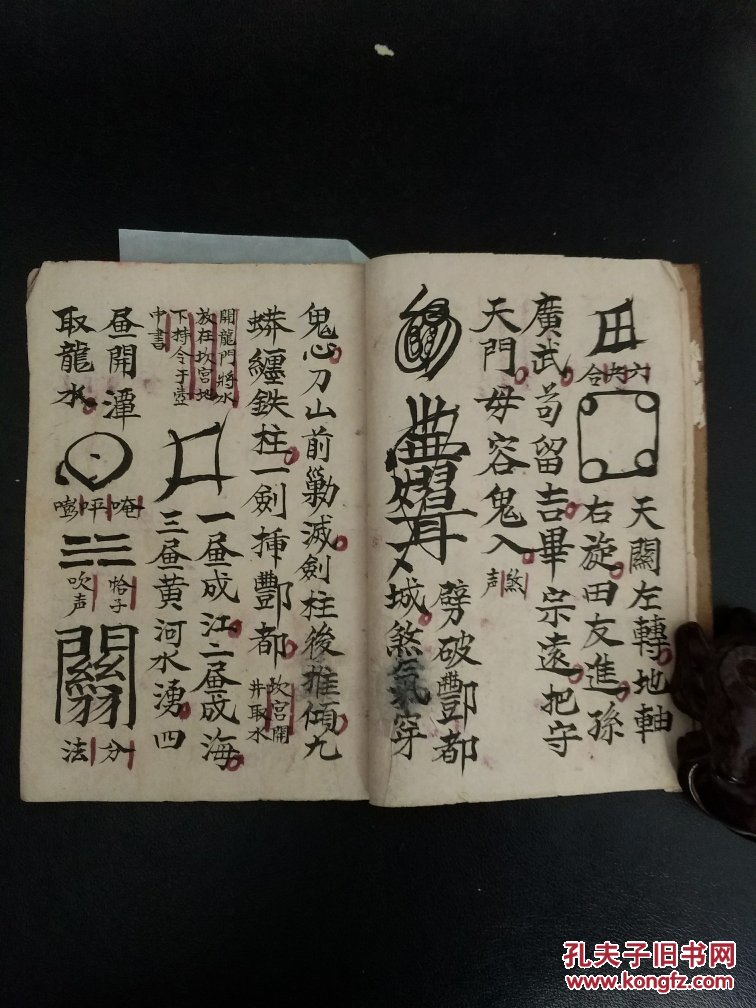 六内合
天關左轉地軸
右旋田友進孫
廣武苟留吉畢宗遠把守
天門毋容鬼入
煞声
劈破酆都
城煞氣穿
鬼心刀山前剿滅劍柱後推傾九
蟒纏鉄柱一劍揷酆都
坎宮開井取水
開龍門將水放在坎宮地下持令于壼中書
一昼成江二昼成海
三昼黄河水湧四
昼開潭
取龍水
唵呯嘭
恰子吹声
分法
孔夫子旧书网
www.kongfz.com